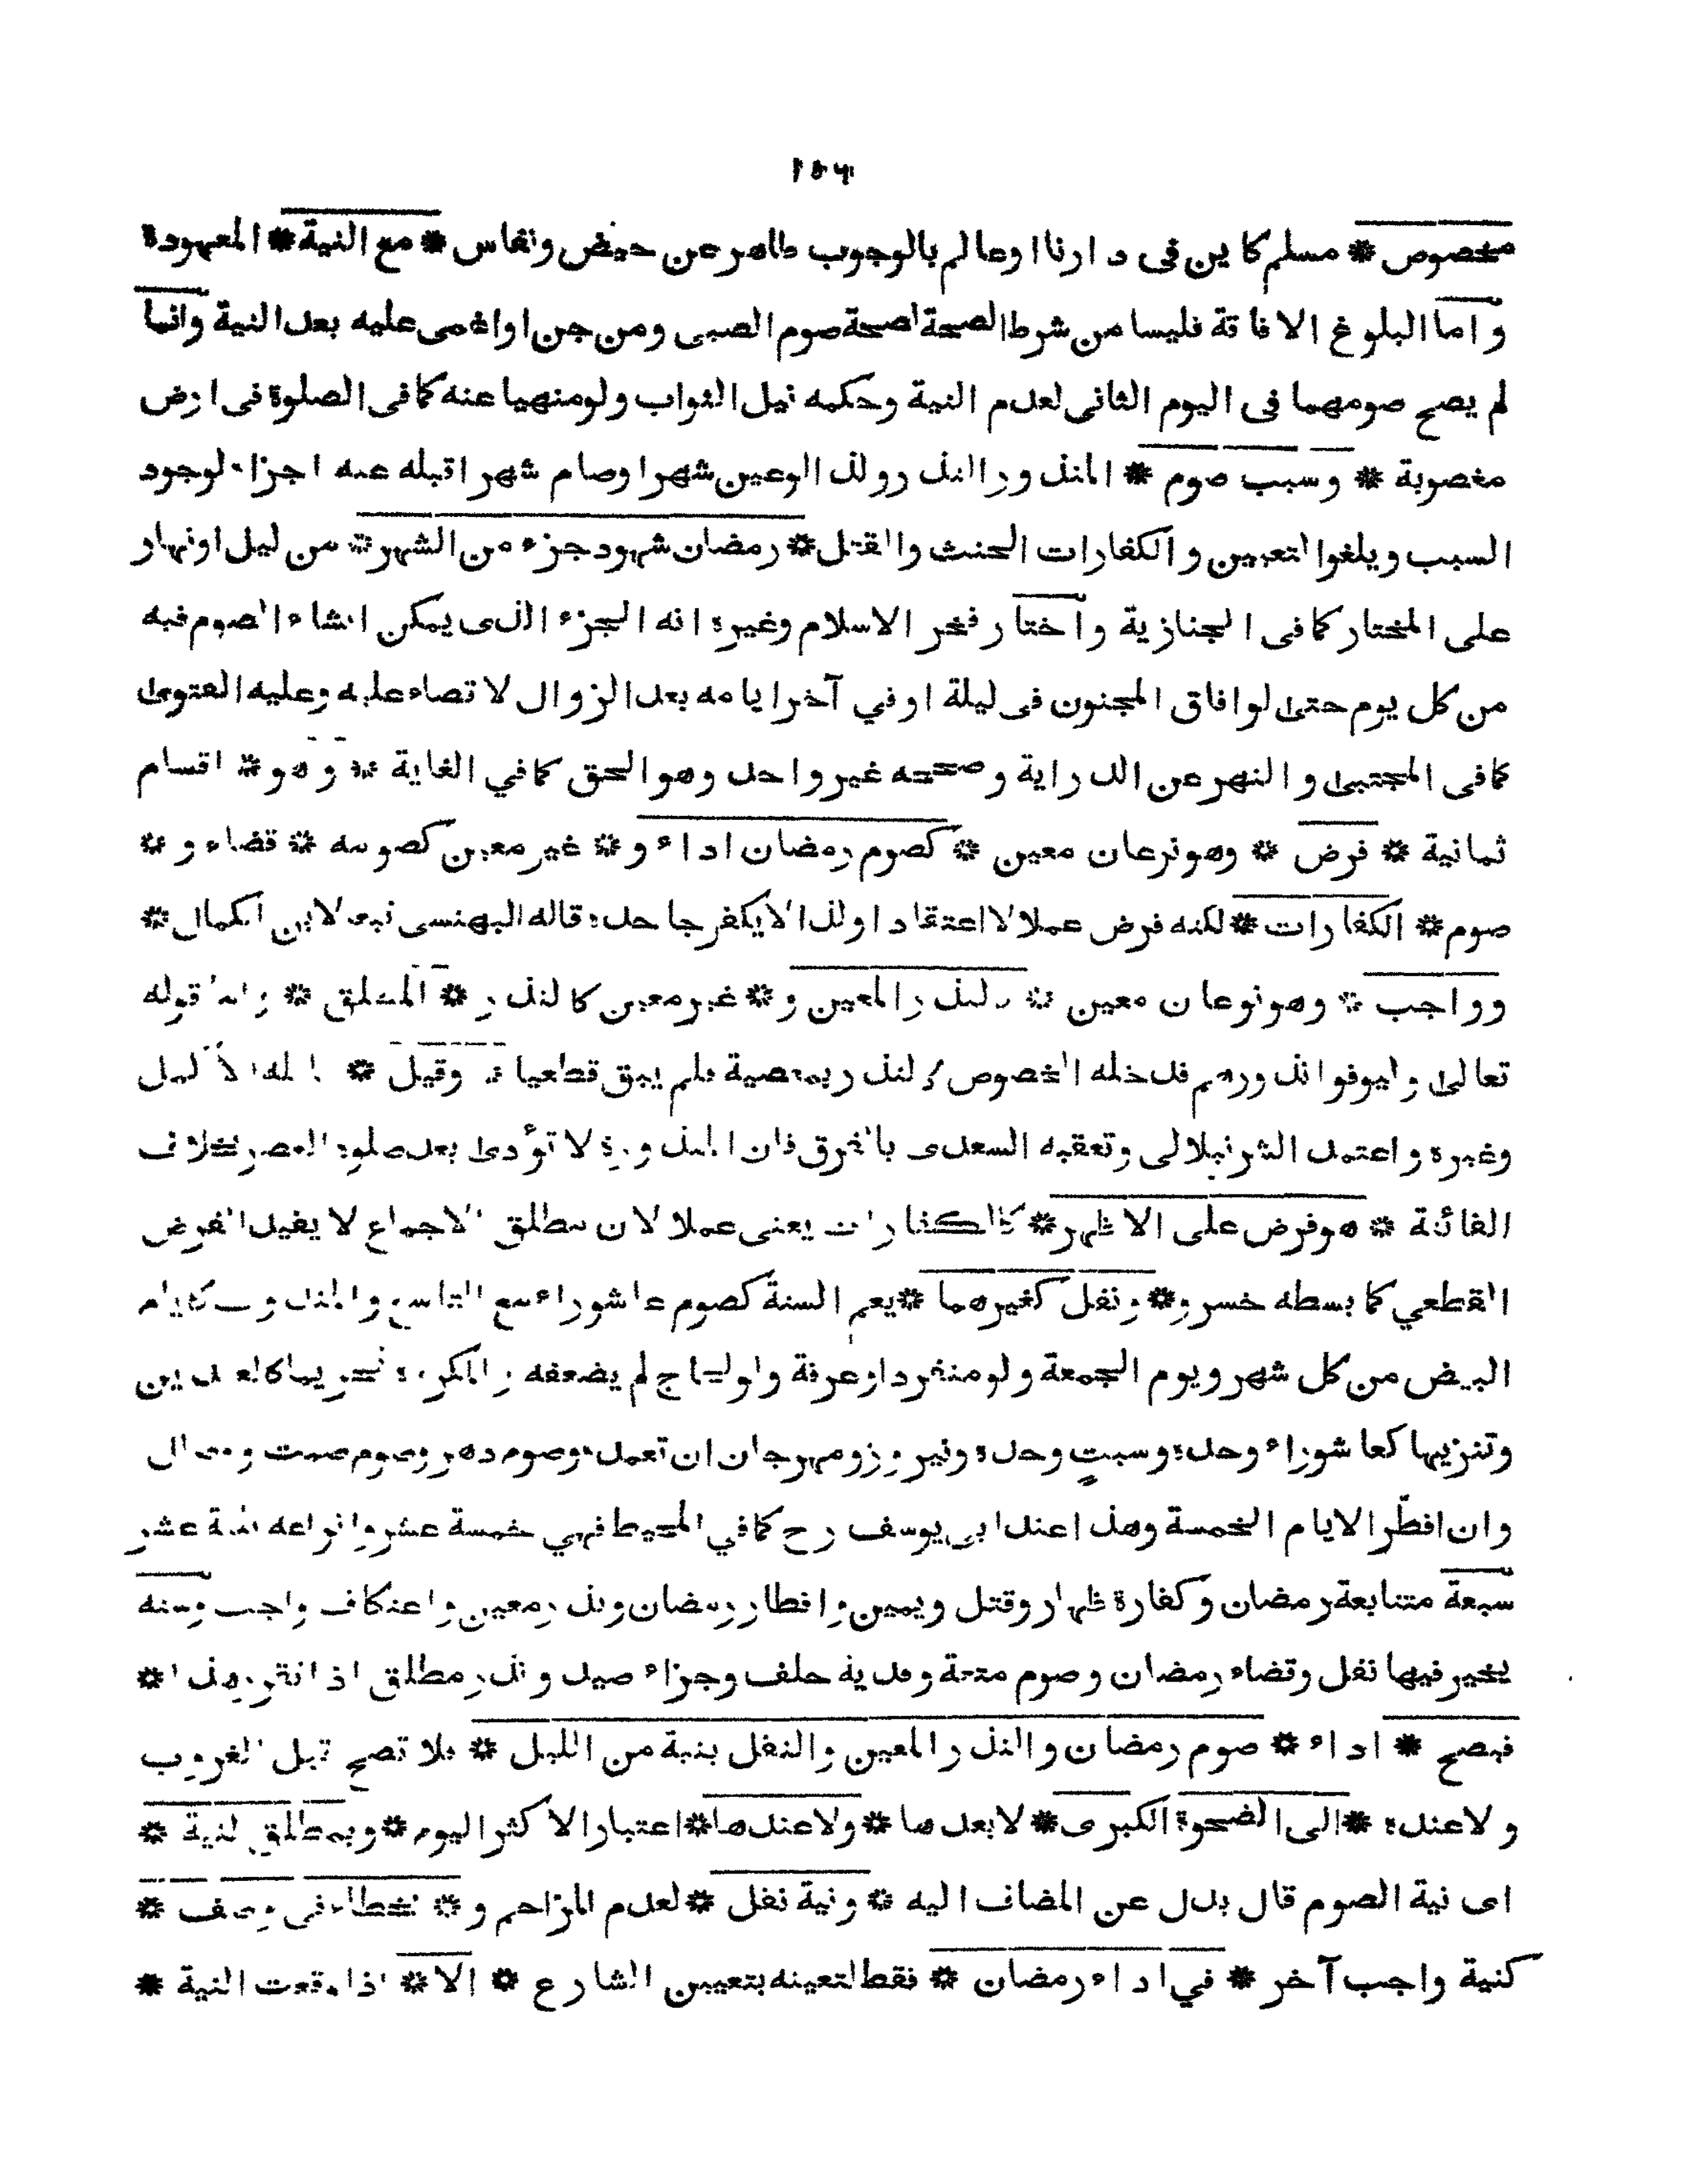 ١٥٦
مخصوص * مسلم كاين فى دارنا اوعالم بالوجوب طاهر عن حيض ونفاس * مع النية * المعهودة
واما البلوغ الافاقة فليسا من شرط الصحة لصحة صوم الصبى ومن جن اواغمى عليه بعد النية وانما
لم يصح صومهما فى اليوم الثانى لعدم النية وحكمه نيل الثواب ولومنهيا عنه كمافى الصلوة فى ارض
مغصوبة * وسبب صوم * المنذور النذر ولذ الوعين شهرا وصام شهرا قبله عنه اجزاء لوجود
السبب ويلغوا لتعيين والكفارات الحنث والقتل * رمضان شهود جزء من الشهر * من ليل اونهار
على المختار كمافى الجنازية واختار فخر الاسلام وغيرة انه الجزء الذى يمكن انشاء الصوم فيه
من كل يوم حتىٰ لوافاق المجنون فى ليلة اوفي آخرايامه بعد الزوال لا قضاء عليه وعليه الفتوىٰ
كمافى المجتبىٰ والنهر عن الدراية وصححه غير واحد وهو الحق كمافي الغاية * وهو * اقسام
ثمانية * فرض * وهونوعان معين * كصوم رمضان اداء و * غير معين كصومه * قضاء و *
صوم * الكفارات * لكنه فرض عملا لااعتقادا ولذا لايكفر جاحدة قاله البهنسى تبعا لابن الكمال *
وواجب * وهونوعان معين * كالنذر المعين و * غير معين كالنذر * المطلق * واما قوله
تعالىٰ وليوفوا نذورهم فدخله الخصوص كالنذر بمعصية فلم يبق قطعيا * وقيل * قاله الاكمل
وغيرة واعتمد الشرنبلالى وتعقبه السعدى بالفرق فان المنذورة لا تؤدىٰ بعد صلوة العصر بخلاف
الفائتة * هوفرض على الاظهر * كالكفارات يعنى عملا لان مطلق الاجماع لا يفيد الفرض
القطعي كما بسطه خسرو * ونفل كغيرهما * يعم السنة كصوم عاشوراء مع التاسع والمندوب كايام
البيض من كل شهر ويوم الجمعة ولومنفردا وعرفة ولولحاج لم يضعفه والمكروة تحريما كالعيدين
وتنزيها كعاشوراء وحدة وسبتٍ وحدة ونيروز ومهرجان ان تعمدة وصوم دهر وصوم صمت ووصال
وان افطّر الايام الخمسة وهذا عندابي يوسف رح كمافي المحيط فهي خمسة عشر وانواعه ثلثة عشر
سبعة متتابعة رمضان وكفارة ظهار وقتل ويمين وافطار رمضان ونذر معين واعتكاف واجب وستة
يخير فيها نفل وقضاء رمضان وصوم متعة وفدية حلف وجزاء صيد ونذر مطلق اذا تقرر هذا *
فيصح * اداء * صوم رمضان والنذر المعين والنفل بنية من الليل * فلا تصح قبل الغروب
ولاعندة * الى الضحوة الكبرى * لا بعدها * ولاعندها * اعتبارا لاكثر اليوم * وبمطلق النية *
اى نية الصوم فال بدل عن المضاف اليه * ونية نفل * لعدم المزاحم و * بخطاء فى وصف *
كنية واجب آخر * في اداء رمضان * فقط لتعينه بتعيين الشارع * الا * اذا وقعت النية *